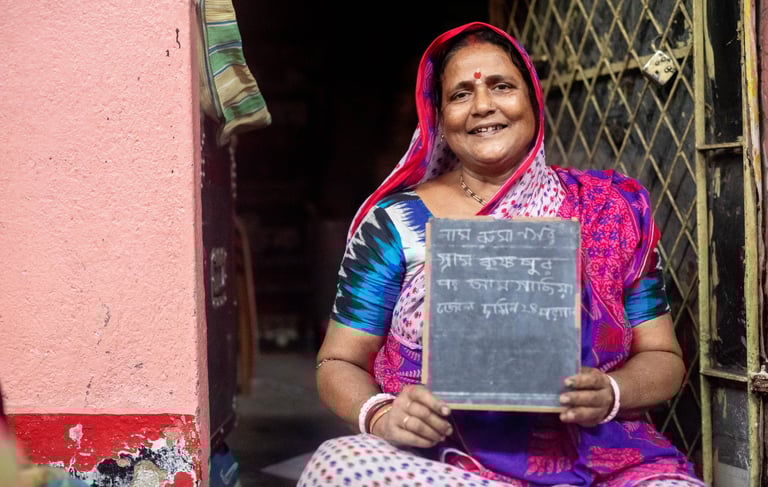 নাম কুমা
গ্রাম কৃষ্ণ পুর
পঃ আমসাজিয়া
জেলা দক্ষিন ২৪ পরগনা